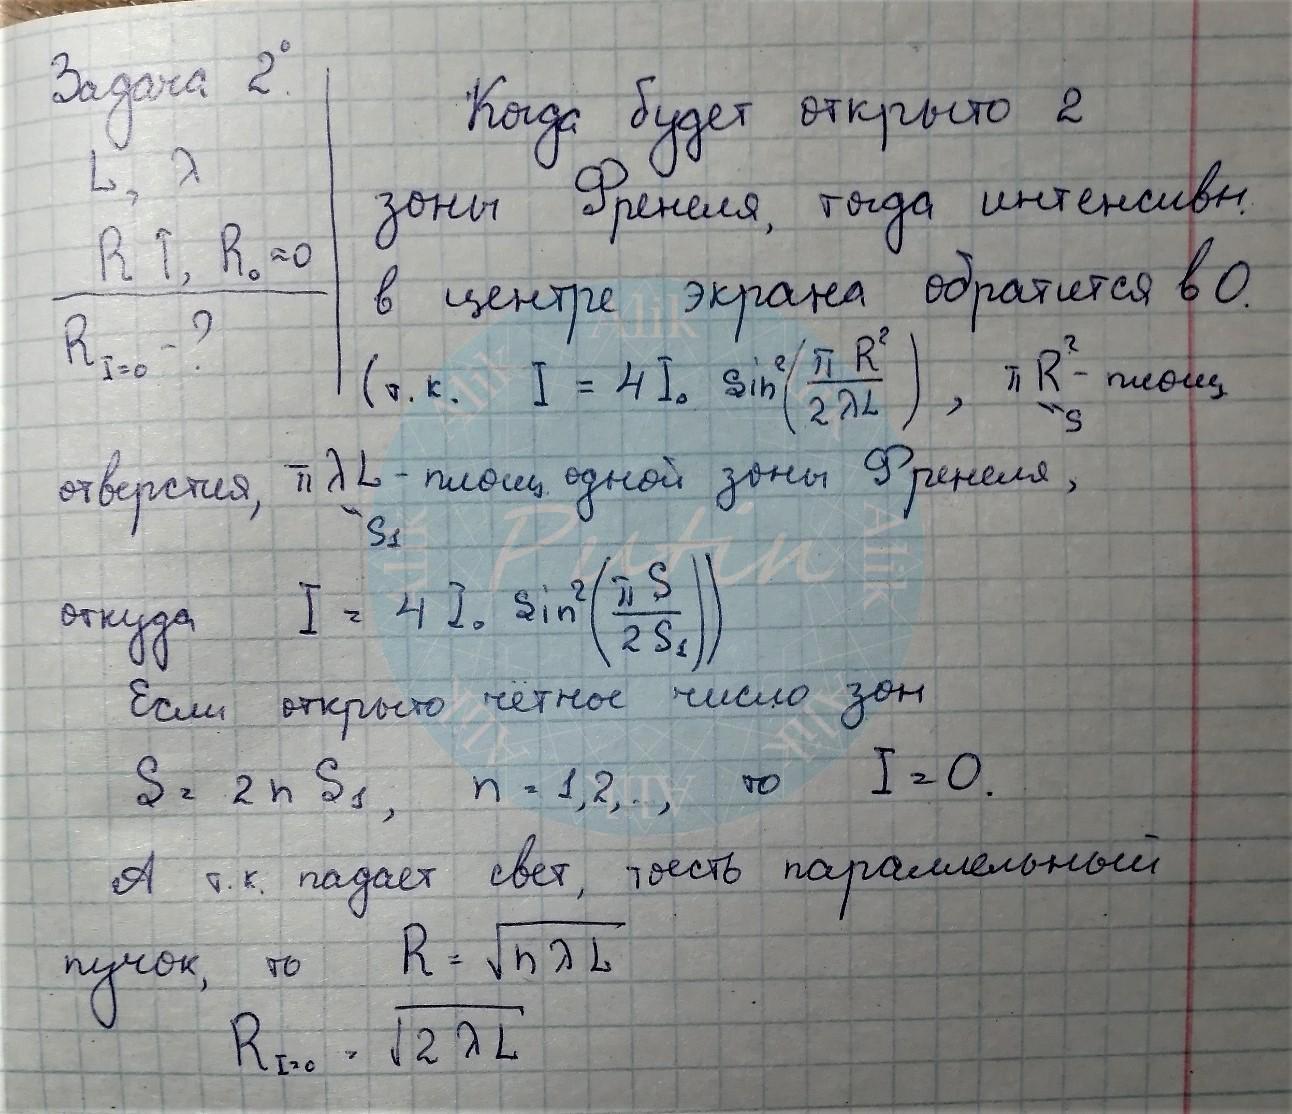 Задача 2°.
L, λ
R ↑, R₀ ≈ 0
R_{I=0} - ?
Когда будет открыто 2
зоны Френеля, тогда интенсивн.
в центре экрана обратится в 0.
(т.к. I = 4 I₀ sin²(π R² / 2 λ L), π R² - площ
S
отверстия, π λ L - площ. одной зоны Френеля,
S₁
откуда I = 4 I₀ sin²(π S / 2 S₁))
Если открыто чётное число зон
S = 2 n S₁, n = 1,2,.., то I = 0.
А т.к. падает свет, тоесть параллельный
пучок, то R = √(n λ L)
R_{I=0} = √(2 λ L)
Putin
Alik
Alik
Alik
Alik
Alik
Alik
Alik
Alik